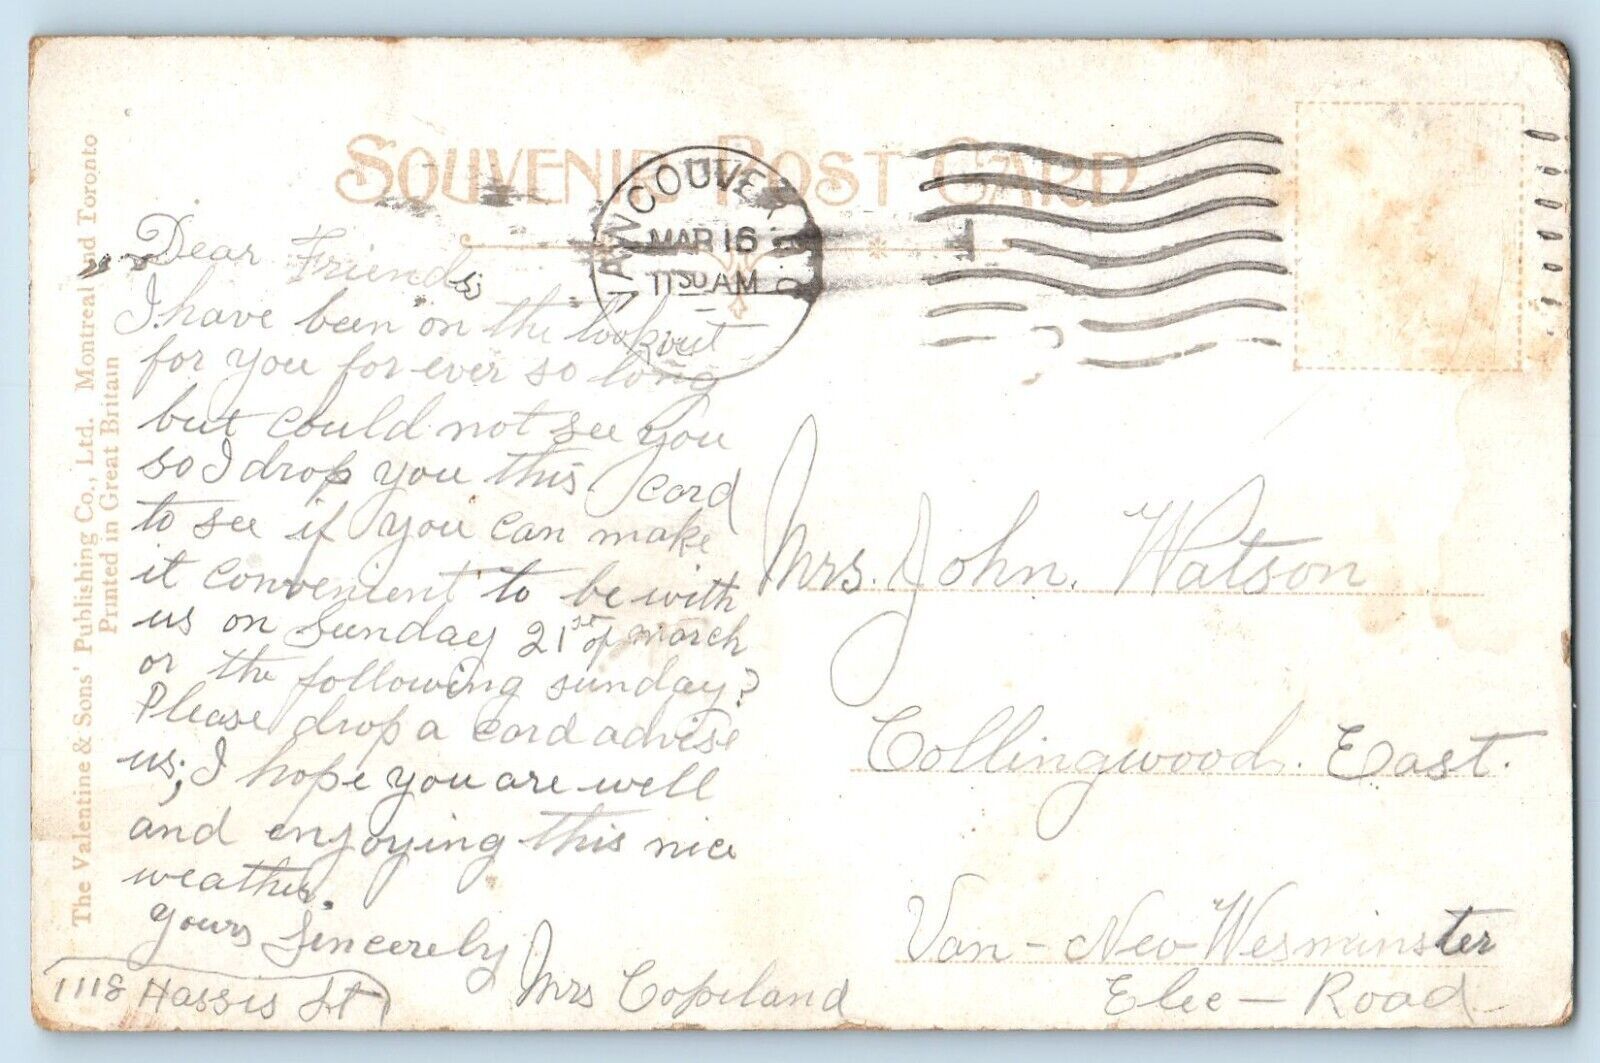 SOUVENIR POST CARD
VANCOUVER B.C.
MAR 16
11 30 AM
The Valentine & Sons' Publishing Co., Ltd. Montreal and Toronto
Printed in Great Britain
Dear Friends
I have been on the lookout
for you for ever so long
but could not see you
so I drop you this card
to see if you can make
it convenient to be with
us on Sunday 21st of March
or the following sunday?
Please drop a card advise
us; I hope you are well
and enjoying this nice
weather.
yours Sincerely
Mrs Copeland
1118 Harris St
Mrs. John. Watson
Collingwood. East.
Van - New Wesminster
Elec - Road